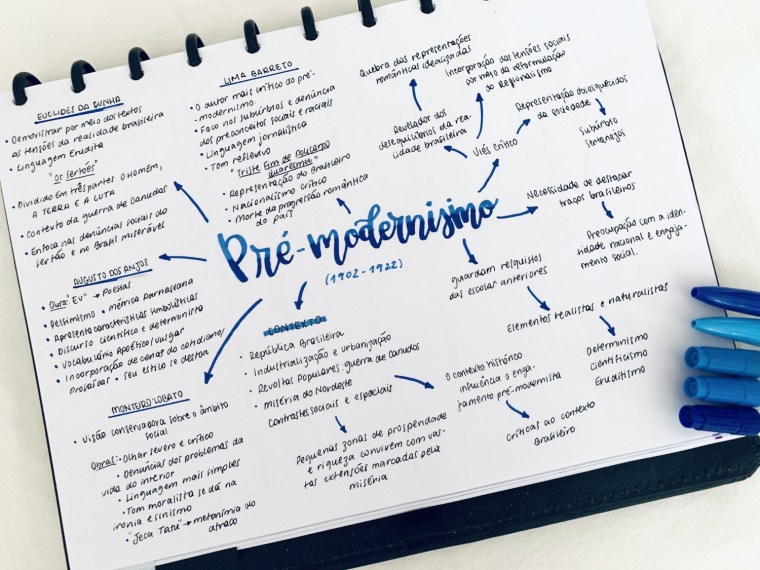 EUCLIDES DA CUNHA
• Demonstrar por meio dos textos
as tensões da realidade brasileira
• Linguagem Erudita
"Os Sertões"
• Dividido em três partes: o Homem,
A TERRA E A LUTA
• Contexto da guerra de Canudos
• Enfoca nas denúncias sociais do
sertão e no Brasil miserável
LIMA BARRETO
• O autor mais crítico do pré-
modernismo
• Foco nos subúrbios e denúncia
dos preconceitos sociais e raciais
• Linguagem jornalística
• Tom reflexivo
"Triste Fim de Policarpo
Quaresma"
• Representação do Brasileiro
• Nacionalismo crítico
• Morte da progressão romântica
do país
Quebra das representações
românticas idealizadas
Incorporação das tensões sociais
por meio da reformulação
do Regionalismo
Revelador dos
desequilíbrios da rea-
lidade brasileira
Viés crítico
Representação dos esquecidos
da sociedade
Subúrbio
Sertanejos
Pré-modernismo
(1902-1922)
Necessidade de destacar
traços brasileiros
Preocupação com a iden-
tidade nacional e engaja-
mento social.
guardam resquisios
das escolar anteriores
Elementos realistas e naturalistas
Determinismo
cientificismo
Eruditismo
AUGUSTO DOS ANJOS
Obra: "EU" → Poesias
• Pessimismo • métrica parnasiana
• Apresenta características simbolistas
• Discurso científico e determinista
• Vocabulário Apoético/vulgar
• Incorporação de cenas do cotidiano/
Prosaicas • seu estilo se destoa
MONTEIRO LOBATO
• Visão conservadora sobre o âmbito
social
Obras: • Olhar severo e crítico
• Denúncias dos problemas da
vida do interior
• Linguagem mais simples
• Tom moralista se dá na
ironia e sinismo
• "Jeca Tatu" → metonímia do
atraso
CONTEXTO
• República Brasileira
• Industrialização e urbanização
• Revoltas Populares - guerra de Canudos
• miséria do Nordeste
Contrastes sociais e espaciais
Pequenas zonas de prosperidade
e riqueza convivem com vas-
tas extensões marcadas pela
miséria
O contexto histórico
influência o enga-
jamento pré-modernista
Críticas ao contexto
Brasileiro